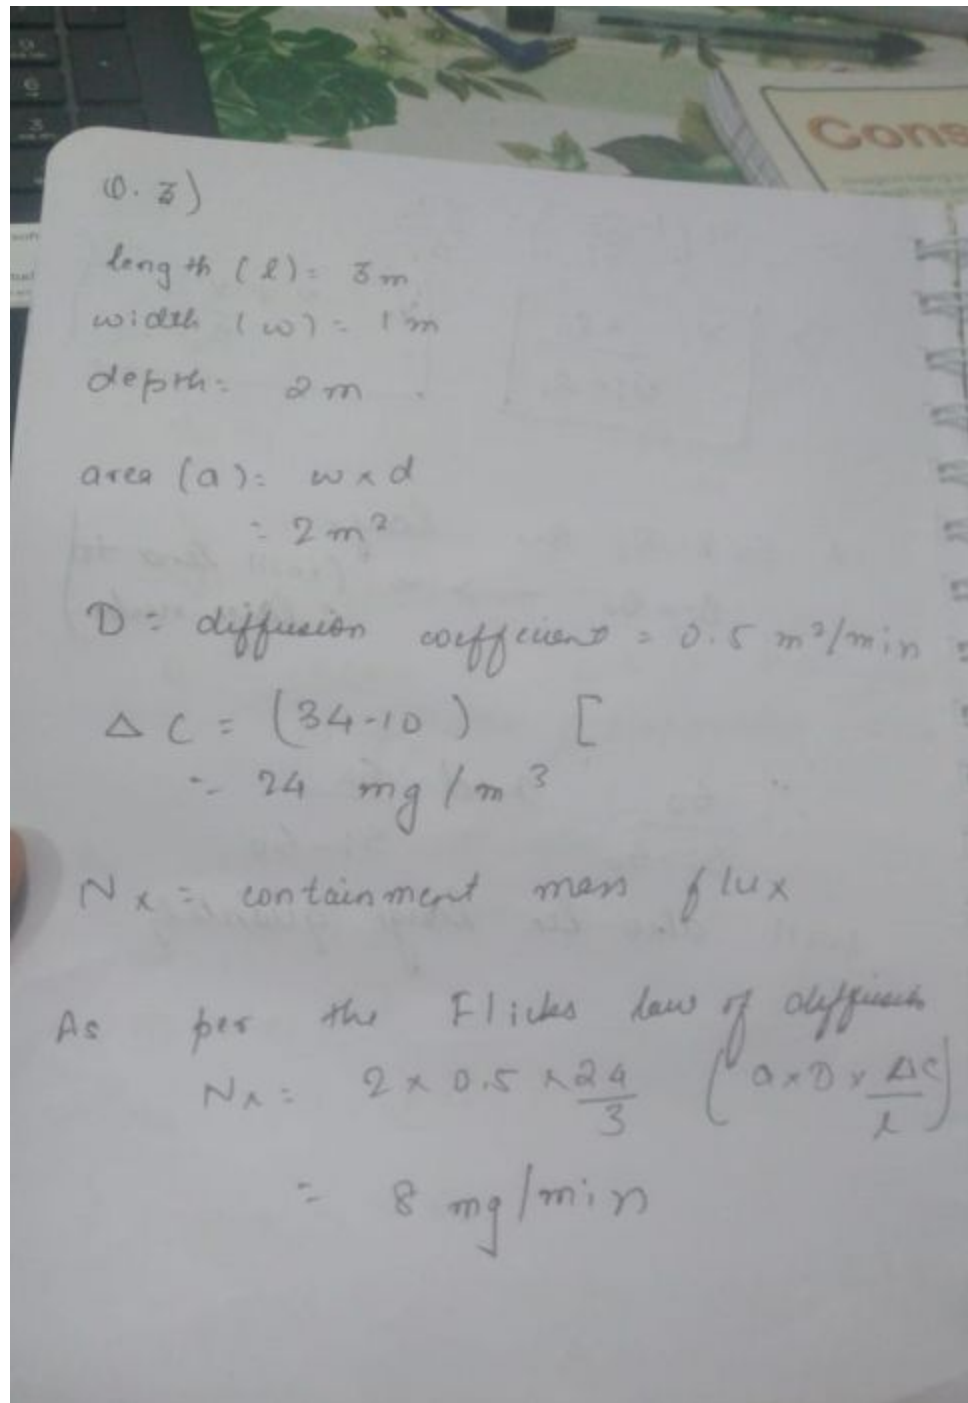 Q. 3)
length (l) = 3m
width (w) = 1m
depth = 2m
area (a) = w x d
= 2m²
D = diffusion coefficient = 0.5 m²/min
Δ C = (34-10) [
= 24 mg/m³
Nx = containment mass flux
As per the Flicks law of diffusion
Nx = 2 x 0.5 x 24/3 (a x D x ΔC/l)
= 8 mg/min
Cons
9
6
3